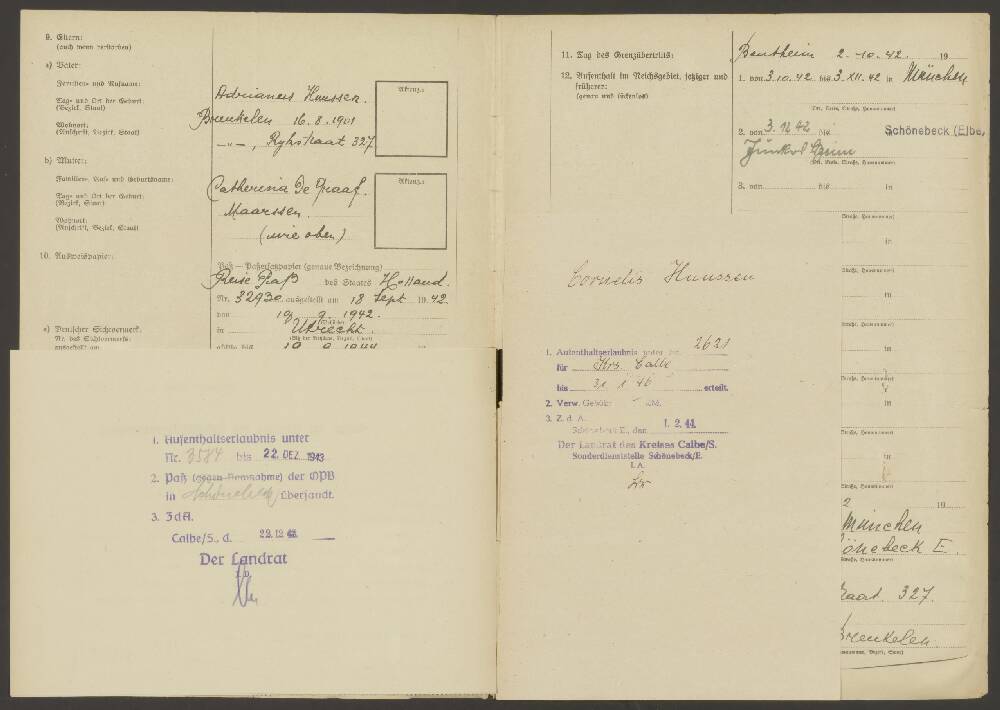 9. Eltern:
(auch wenn verstorben)
a) Vater:
Familien- und Rufname:
Adrianus Hunssen.
Aktenz.:
Tag- und Ort der Geburt:
(Bezirk, Staat)
Breukelen 16.8.1901
Wohnort:
(Anschrift, Bezirk, Staat)
-"-, Ryksstraat 327
b) Mutter:
Familien-, Ruf- und Geburtsname:
Catherina De Graaf.
Aktenz.:
Tag- und Ort der Geburt:
(Bezirk, Staat)
Maarssen.
Wohnort:
(Anschrift, Bezirk, Staat)
(wie oben)
10. Ausweispapier:
Paß – Paßersatzpapier (genaue Bezeichnung)
Reise Paß des Staates Holland.
Nr. 32930 ausgestellt am 18 Sept 1942.
von 18 9. 1942.
in Utrecht.
a) Deutscher Sichtvermerk.
Nr. des Sichtvermerks:
ausgestellt am
1. Aufenthaltserlaubnis unter
Nr. 3584 bis 22. DEZ. 1943
2. Paß (gegen Abnahme) der OPB
in Schönebeck übersandt.
3. ZdA.
Calbe/S., d. 22.12.43.
Der Landrat
11. Tag des Grenzübertritts:
Bentheim 2.-10.42. 19
12. Aufenthalt im Reichsgebiet, jetziger und
früherer:
(genau und lückenlos)
1. von 3.10.42. bis 3.XII.42 in München
Ort, Kreis, Straße, Hausnummer
2. von 3.12.42 bis
Schönebeck (Elbe,
Ort, Kreis, Straße, Hausnummer
3. von bis in
Straße, Hausnummer
in
Straße, Hausnummer
in
Straße, Hausnummer
in
Straße, Hausnummer
in
Straße, Hausnummer
in
Straße, Hausnummer
2 19
München
önebeck E.
Straße, Hausnummer
raat. 327.
Breukelen.
Cornelis Hunssen
1. Aufenthaltserlaubnis unter Nr. 2621
für Krs. Calbe
bis 31 1 46 erteilt.
2. Verw. Gebühr RM.
3. Z. d. A.
Schönebeck E., den 1. 2. 44.
Der Landrat des Kreises Calbe/S.
Sonderdienststelle Schönebeck/E.
I. A.